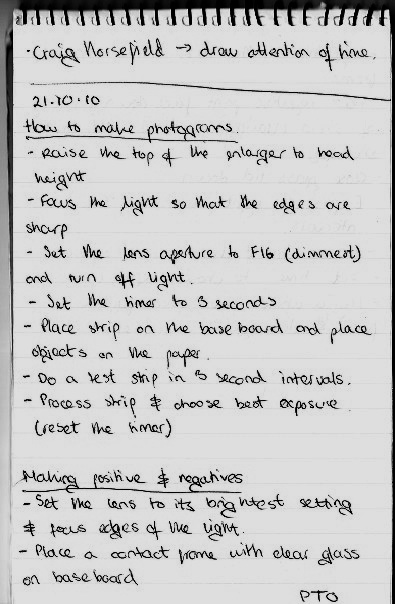 · Craig Horsefield → draw attention of time.
21.10.10
How to make photograms.
- Raise the top of the enlarger to head
height
- Focus the light so that the edges are
sharp
- Set the lens aperture to F16 (dimmest)
and turn off light.
- Set the timer to 3 seconds
- Place strip on the base board and place
objects on the paper.
- Do a test strip in 3 second intervals.
- Process strip & choose best exposure
(reset the timer)
Making positive & negatives
- Set the lens to its brightest setting
& focus edges of the light.
- Place a contact frame with clear glass
on baseboard
PTO